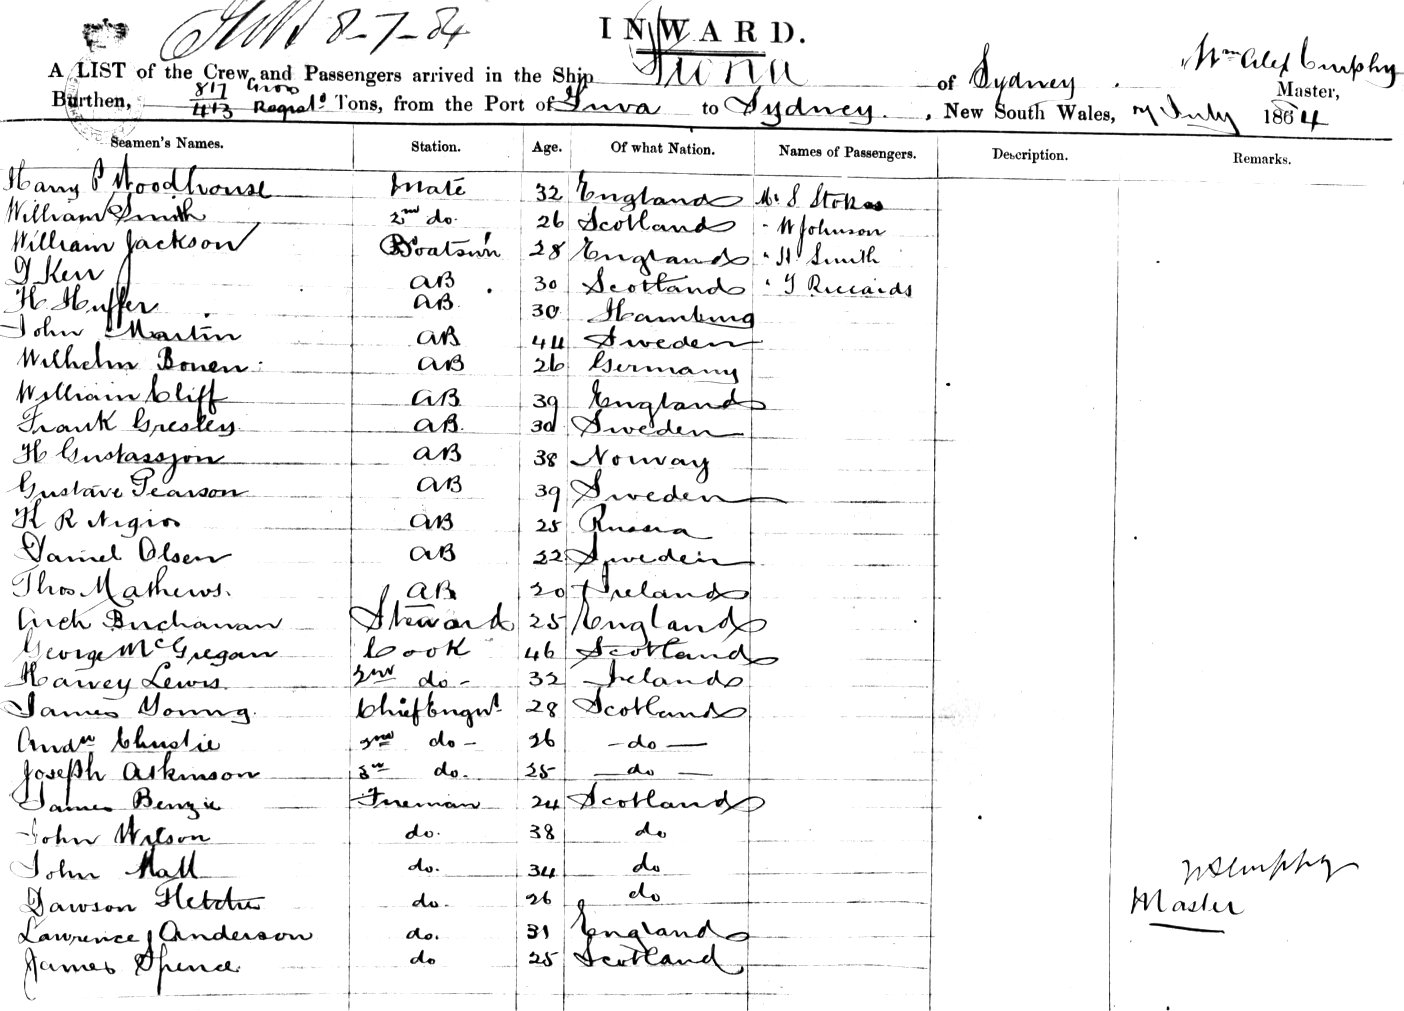 8-7-84
INWARD.
A LIST of the Crew and Passengers arrived in the Ship Fiona of Sydney Wm Alex Curphy Master,
Burthen, 817 Gross 413 Registd Tons, from the Port of Suva to Sydney, New South Wales, 7 July 1884
Seamen's Names. Station. Age. Of what Nation. Names of Passengers. Description. Remarks.
Harry P Woodhouse Mate 32 England Mr S Stokes
William Smith 2nd do. 26 Scotland " W Johnson
William Jackson Boatsn 28 England " H Smith
Kerr AB 30 Scotland " Riccards
H Huffer AB 30 Hamburg
John Martin AB 44 Sweden
Wilhelm Bonen AB 26 Germany
William Cliff AB 39 England
Frank Gresley AB 30 Sweden
H Gustassjon AB 38 Norway
Gustave Pearson AB 39 Sweden
R Nigros AB 25 Russia
Daniel Olsen AB 32 Sweden
Thos Mathews. AB 20 Ireland
Arch Buchanan Steward 25 England
George McGregan Cook 46 Scotland
Harvey Lewis 2nd do - 32 Ireland
James Young Chief Engnr 28 Scotland
Andw Christie 2nd do - 26 - do -
Joseph Atkinson 3rd do. 25 - do -
James Benzie Fireman 24 Scotland
John Wilson do. 38 do
John Hall do. 34 do
Dawson Fletcher do. 26 do
Lawrence Anderson do. 31 England
James Spence do 25 Scotland
Curphy
Master